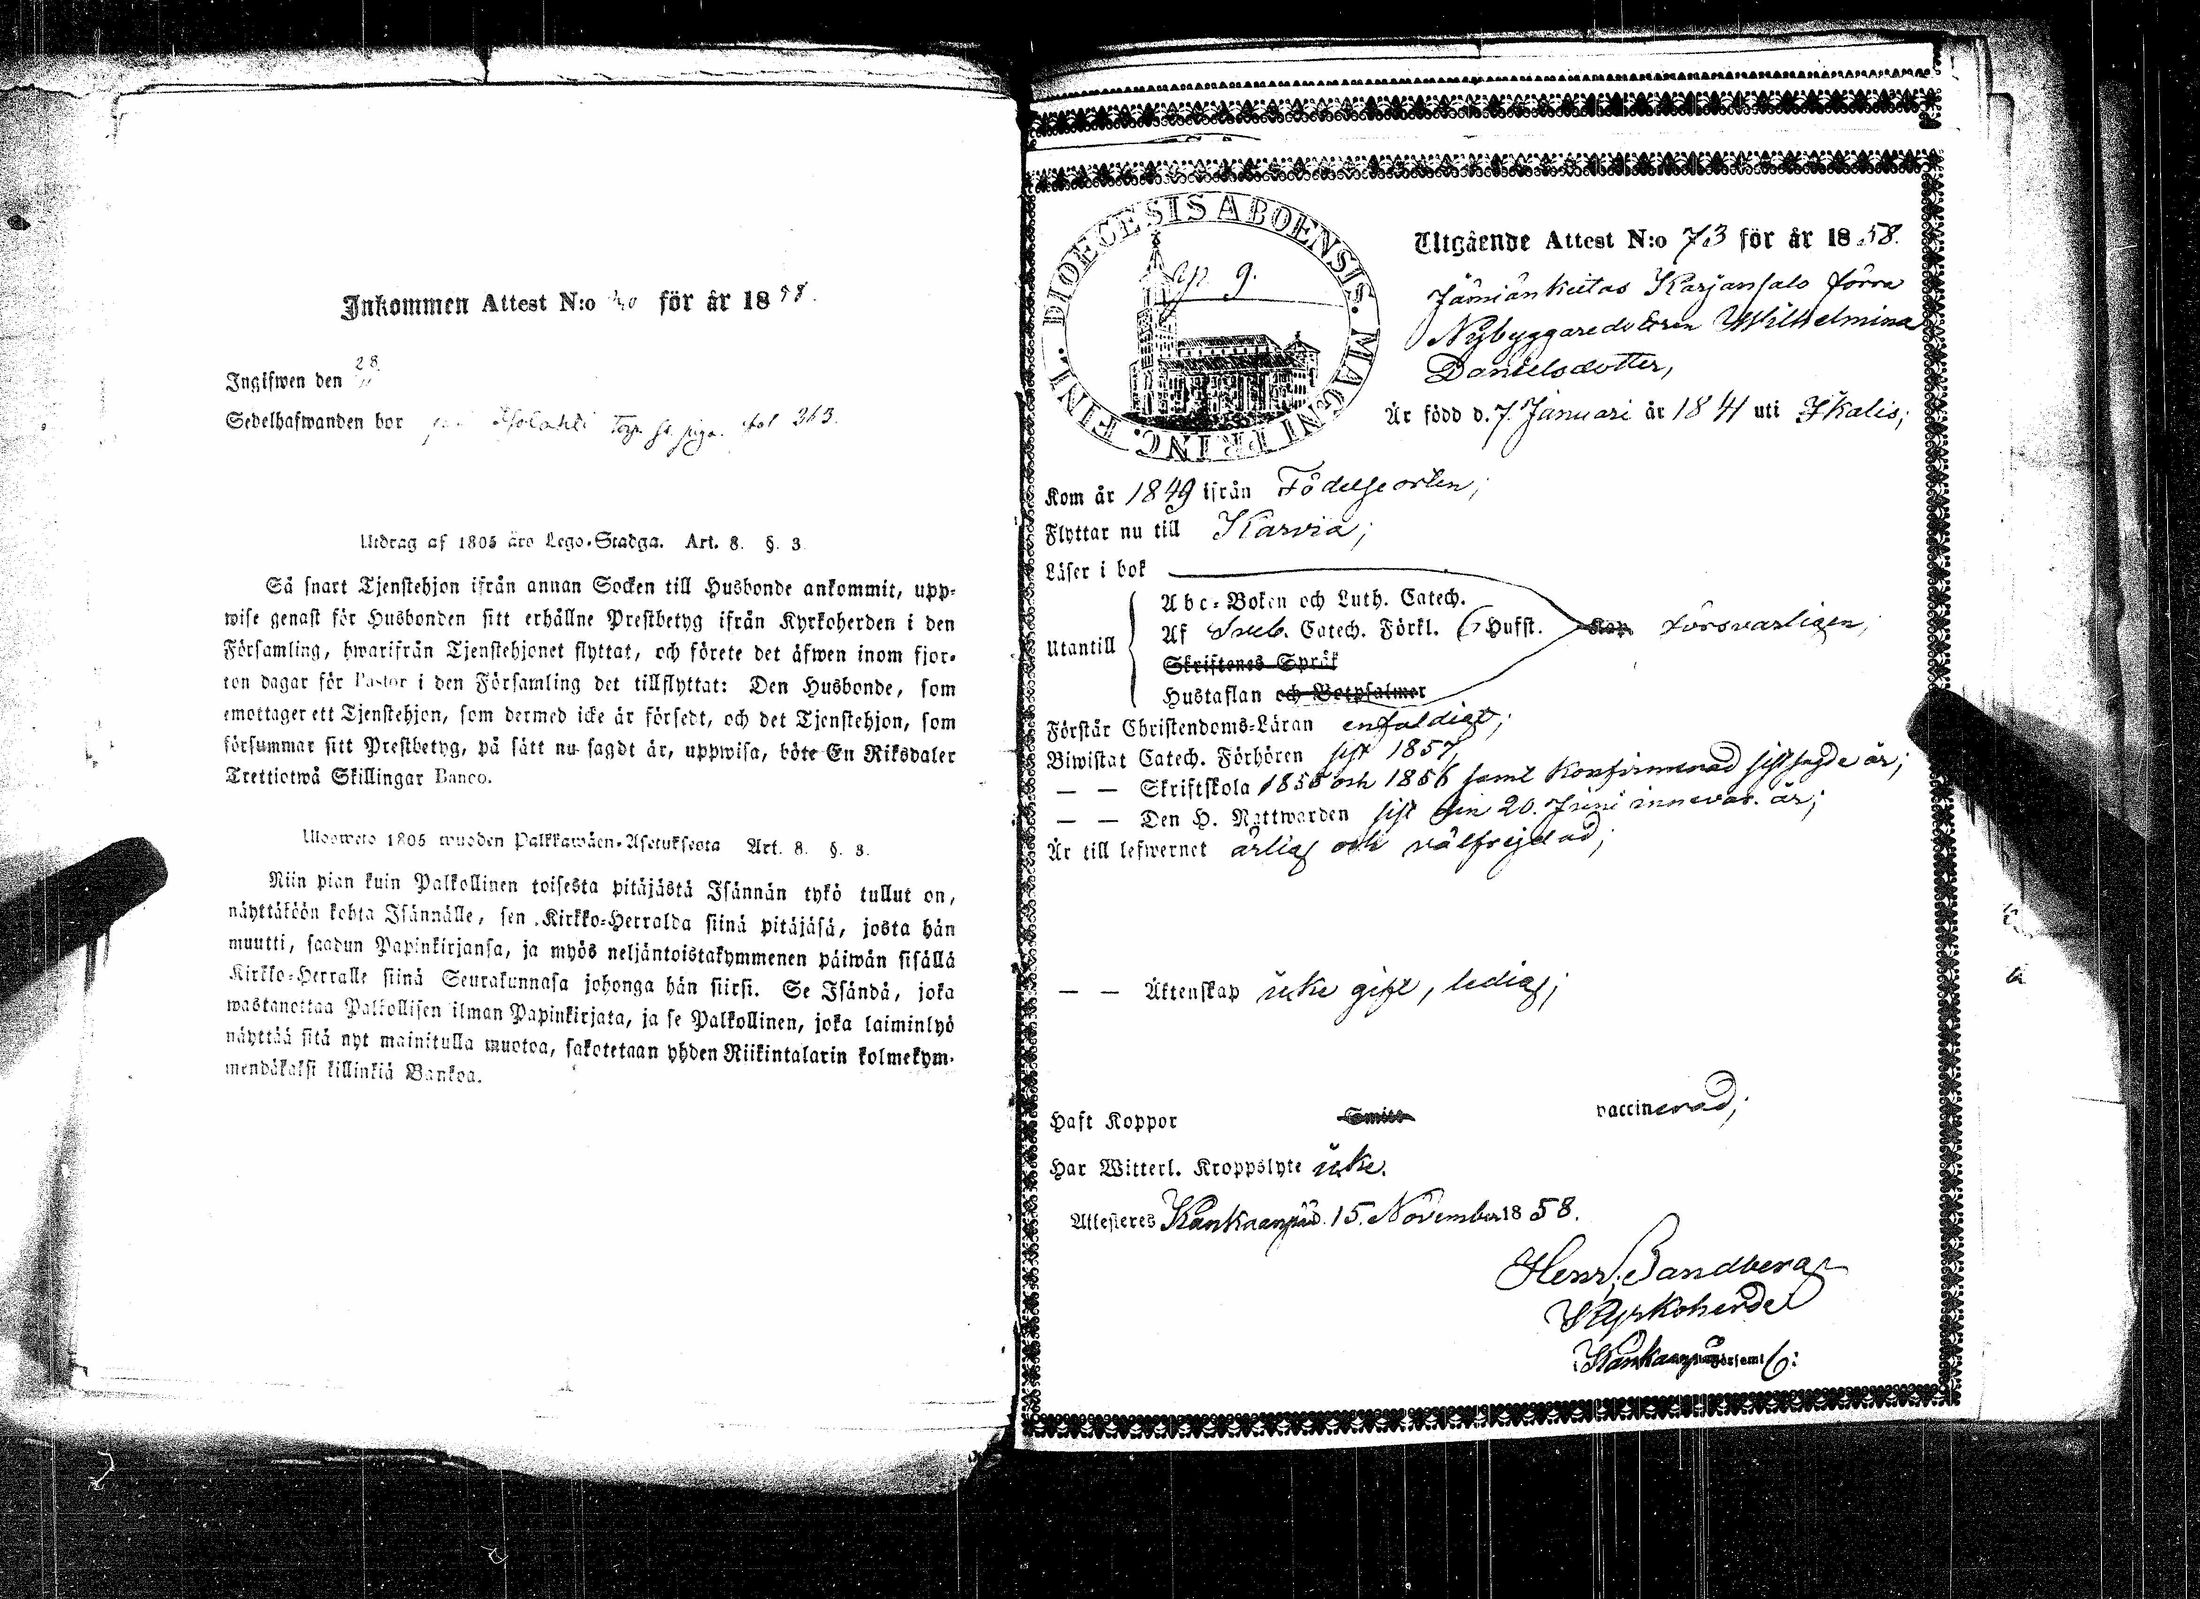 Inkommen Attest N:o för år 1858.
Ingifwen den 28/11
Sedelhafwanden bor Isolahti Torp fol 363.
Utdrag af 1805 års Lego-Stadga. Art. 8. §. 3.
Så snart Tjenstehjon ifrån annan Socken till Husbonde ankommit, upp-
wise genast för Husbonden sitt erhållne Prestbetyg ifrån Kyrkoherden i den
Församling, hwarifrån Tjenstehjonet flyttat, och förete det äfwen inom fjor-
ton dagar för Pastor i den Församling det tillflyttat: Den Husbonde, som
emottager ett Tjenstehjon, som dermed icke är försedt, och det Tjenstehjon, som
försummar sitt Prestbetyg, på sätt nu sagdt är, uppwisa, böte En Riksdaler
Trettiotwå Skillingar Banco.
Ulosweto 1805 wuoden Palkkawäen-Asetuksesta Art. 8. §. 3.
Niin pian kuin Palkollinen toisesta pitäjästä Isännän tykö tullut on,
näyttäköön kohta Isännälle, sen Kirkko-Herralda siinä pitäjäsä, josta hän
muutti, saadun Papinkirjansa, ja myös neljäntoistakymmenen päiwän sisällä
Kirkko-Herralle siinä Seurakunnasa johonga hän siirsi. Se Isändä, joka
wastanottaa Palkollisen ilman Papinkirjata, ja se Palkollinen, joka laiminlyö
näyttää sitä nyt mainitulla muotoa, sakotetaan yhden Riikintalarin kolmekym-
mendäkaksi killinkiä Bankoa.
DIOECESIS ABOENSIS. MAGNI PRINC. FINL.
sp 9.
Utgående Attest N:o 73 för år 1858.
Jämiänkeitas Karjansalo förra
Nybyggaredottren Wilhelmina
Danielsdotter,
Är född d. 7. Januari år 1841 uti Ikalis;
Kom år 1849 ifrån Födelseorten;
Flyttar nu till Karvia;
Läser i bok
Utantill
Abc-Boken och Luth. Catech.
Af Sveb. Catech. Förkl. 6 Hufst. Kap. försvarligen;
Skriftenes Språk
Hustaflan och Botpsalmer
Förstår Christendoms-Läran enfaldigt;
Biwistat Catech. Förhören sist 1857,
— — Skriftskola 1855 och 1856 samt konfirmerad sistsagde år;
— — Den H. Nattwarden sist den 20. Juni innevar. år;
Är till lefwernet ärlig och välfrejdad;
— — Äktenskap icke gift, ledig;
Haft Koppor Smitt vaccinerad;
Har Witterl. Kroppslyte icke.
Attesteres Kankaanpää d. 15. November 1858.
Henr. Sandberg
Kyrkoherde
Kankaanpää församl